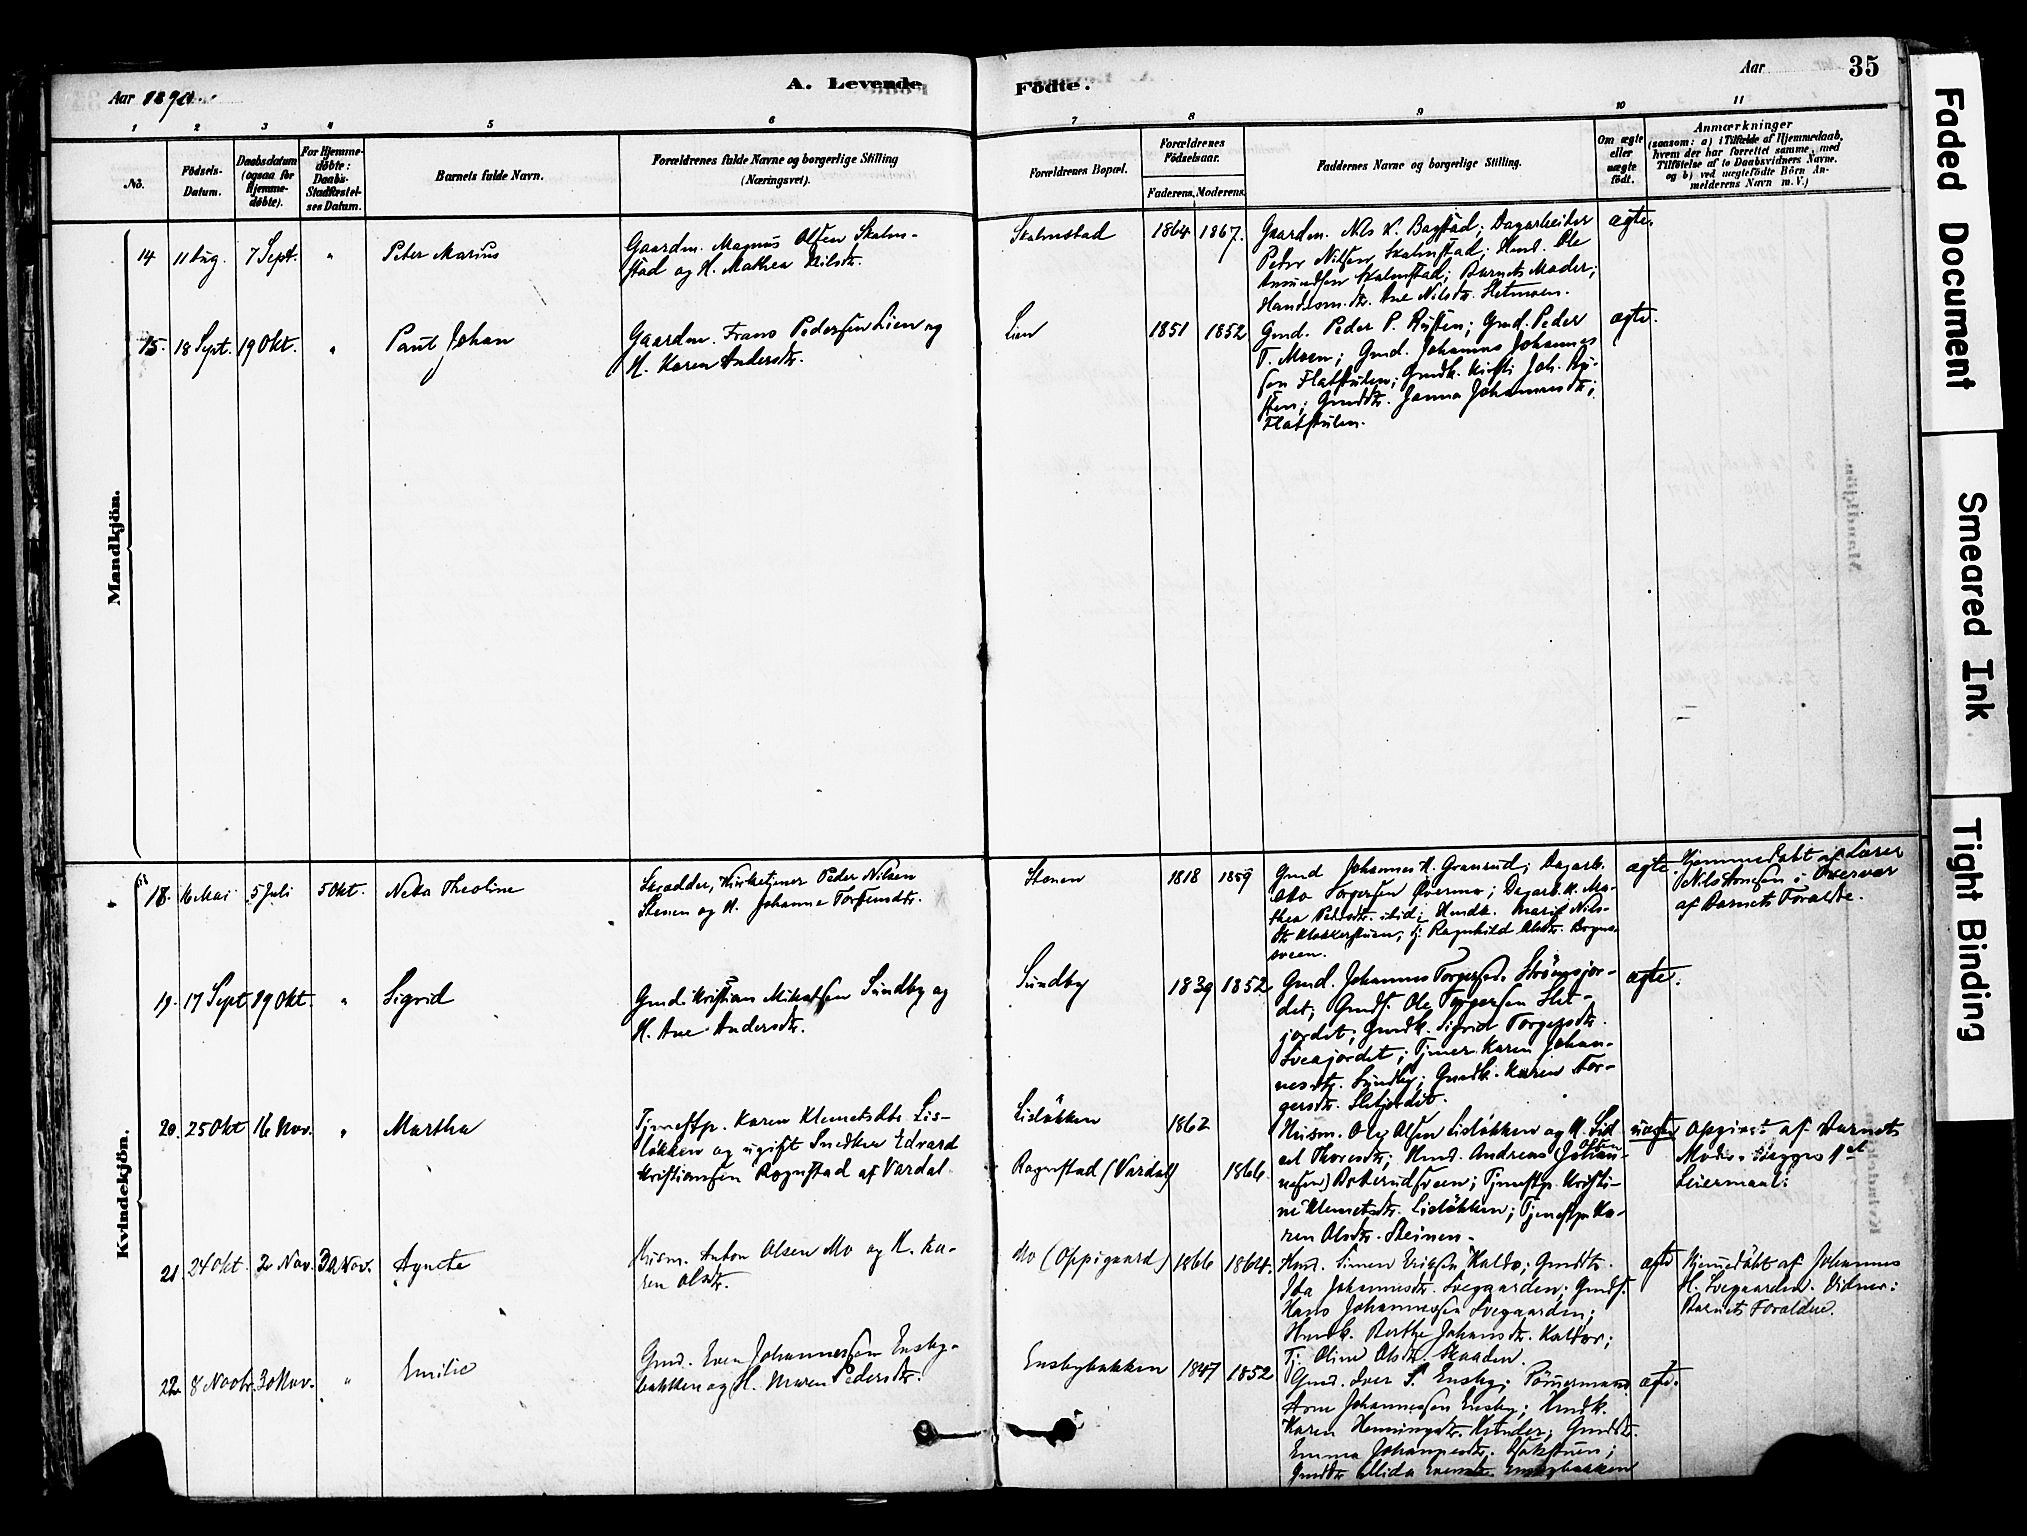 Aar 1890.
A. Levende
Födte.
Aar
35
1 2 3 4 5 6 7 8 9 10 11
No.
Födsels-Datum.
Daabsdatum (ogsaa for Hjemme-døbte).
For Hjemme-døbte: Daabs-Stadfæstel-ses Datum.
Barnets fulde Navn.
Forældrenes fulde Navne og borgerlige Stilling
(Næringsvei).
Forældrenes Bopæl.
Forældrenes Födselsaar.
Faderens. Moderens.
Faddernes Navne og borgerlige Stilling.
Om ægte eller uægte født.
Anmærkninger
(saasom: a) i Tilfælde af Hjemmedaab,
hvem der har forrettet samme, med
Tilføielse af to Daabsvidners Navne,
og b) ved uægtefødte Børn An-
melderens Navn m. V.)
Mandkjön.
14 11 Aug. 7 Sept. " Peter Marius
Gaardm. Magnus Olsen Skalm-
stad og H. Mathea Nilsdtr.
Skalmstad 1864 1867.
Gaardm. Nils L. Bagstad; Dagarbeider
Peder Nilsen Skalmstad; Hmd. Ole
Amundsen Skalmstad; Barnets Moder;
Handelsm. dtr. Ane Nilsdtr. Sletmoen.
ægte.
15. 18 Sept. 19 Okt. " Paul Johan
Gaardm. Frans Pedersen Lien og
H. Karen Andersdtr.
Lien 1851 1852
Gmd. Peder P. Rusten; Gmd. Peder
T. Moen; Gmd. Johannes Johannes
sen Flatstulen; Gmdk. Kirsti Joh. Ru-
sten; Gmddtr. Janna Johannesdtr;
Flatstulen.
ægte.
Kvindekjön.
18. 16 Mai 5 Juli 5 Okt. Netta Theoline
Skrædder, Kirketjener Peder Nilsen
Stenen og H. Johanne Torgersdtr.
Stenen 1818 1859
Gmd Johannes H. Granrud; Dagarb.
Otto Torgersen Overmo; Dagarb. K. Ma-
thea Pedersdtr. ibid; Hmdk. Marie Nils-
dtr Klokkerstuen; Tj. Ragnhild Olsdtr. Bogna-
sveen.
ægte.
Hjemmedøbt af Lærer
Nils Arnesen i Overvær
af Barnets Forældre.
19. 17 Sept. 19 Okt. " Sigrid
Gmd. Kristian Mikalsen Sundby og
H. Ane Andersdtr.
Sundby 1839 1852
Gmd. Johannes Torgersen Strømsjor-
det; Gmds. Ole Torgersen Slet-
jordet; Gmdk. Sigrid Torgersdtr.
Sveajordet; Tjener Karen Johan-
nesdtr. Sundby; Gmdk. Karen Tor-
gersdtr. Sletjordet.
ægte.
20. 25 Okt 16 Nov. " Martha
Tjenestp. Karen Klemetsdtr. Lis-
løkken og ugift Snedker Edvard
Kristiansen Rognstad af Vardal
Lisløkken 1862
Rognstad (Vardal) 1866
Husm. Ole Olsen Lisløkken og H. Sid-
sel Thoresdtr; Hmd. Andreas Johan-
nesen Bakerudsveen; Tjenestp. Kristi-
ne Klemetsdtr. Lisløkken; Tjenestp. Ka-
ren Olsdtr. Steinen.
uægte
Opgivet af Barnets
Moder. Begges 1st
Leiermaal.
21 24 Okt. 2 Nov. 30 Nov. Agnethe
Husm. Anton Olsen Mo og H. Ka-
ren Olsdtr.
Mo (Oppigaard) 1866 1864.
Hmd. Simen Eriksen Kaldor; Gmddtr.
Ida Johannesdtr. Svegaarden; Gmds.
Hans Johannessen Svegaarden;
Hmdk. Berthe Johansdtr. Kaldor;
Tj. Oline Olsdtr. Skaaden.
ægte
Hjemmedøbt af Johannes
H. Svegaarden. Vidner:
Barnets Forældre.
22 8 Novbr. 30 Nov. " Emilie
Gmd. Even Johannessen Ensby-
bakken og H. Maren Pedersdtr.
Ensbybakken 1847 1852
Gmd. Iver S. Ensby; Tømmermand
Arne Johannessen Ensby; Hmdk.
Karen Henningsdtr. Kinder; Gmddtr.
Emma Johannesdtr. Bakstuen;
Gmddtr Alida Evensdtr. Ensbybakken
ægte.
Faded Document
Smeared Ink
Tight Binding